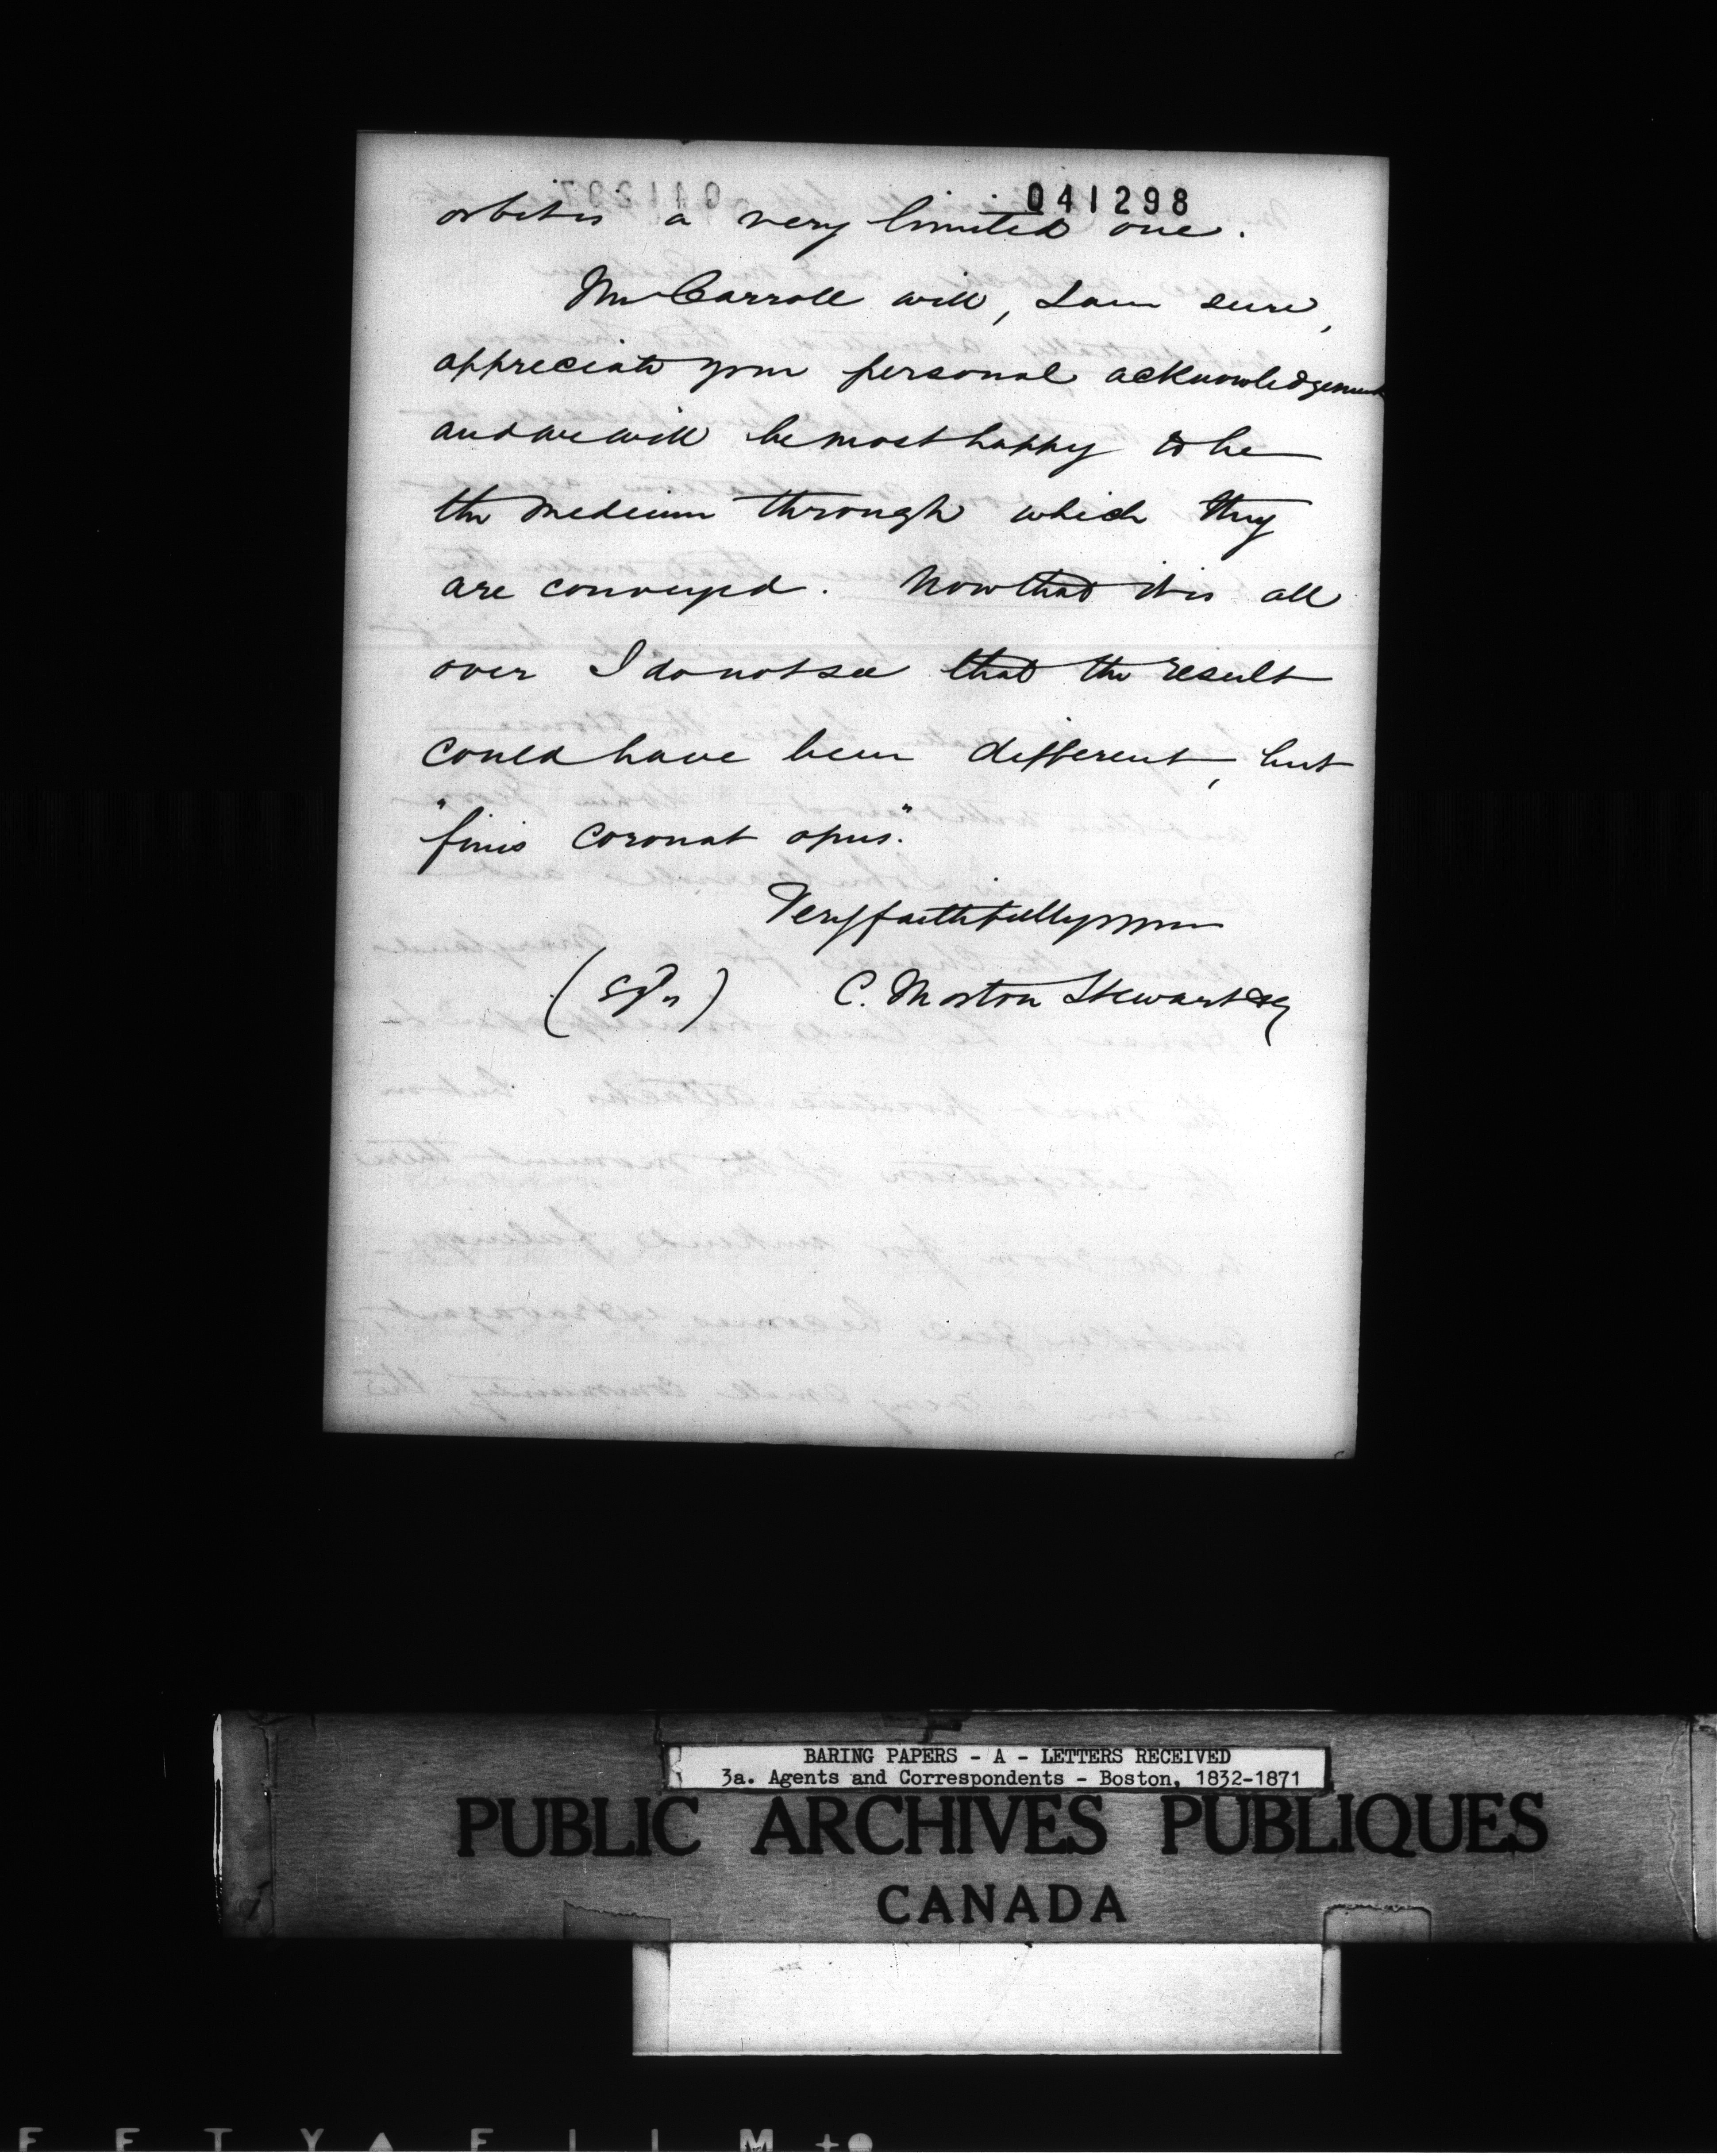 041298
orbit is a very limited one.
Mr Carroll will, I am sure,
appreciate your personal acknowledgements
and we will be most happy to be
the medium through which they
are conveyed. Now that it is all
over I do not see that the result
could have been different, but
"finis coronat opus".
Very faithfully yours
(Sgd) C. Morton Stewart
BARING PAPERS - A - LETTERS RECEIVED
3a. Agents and Correspondents - Boston, 1832-1871
PUBLIC ARCHIVES PUBLIQUES
CANADA